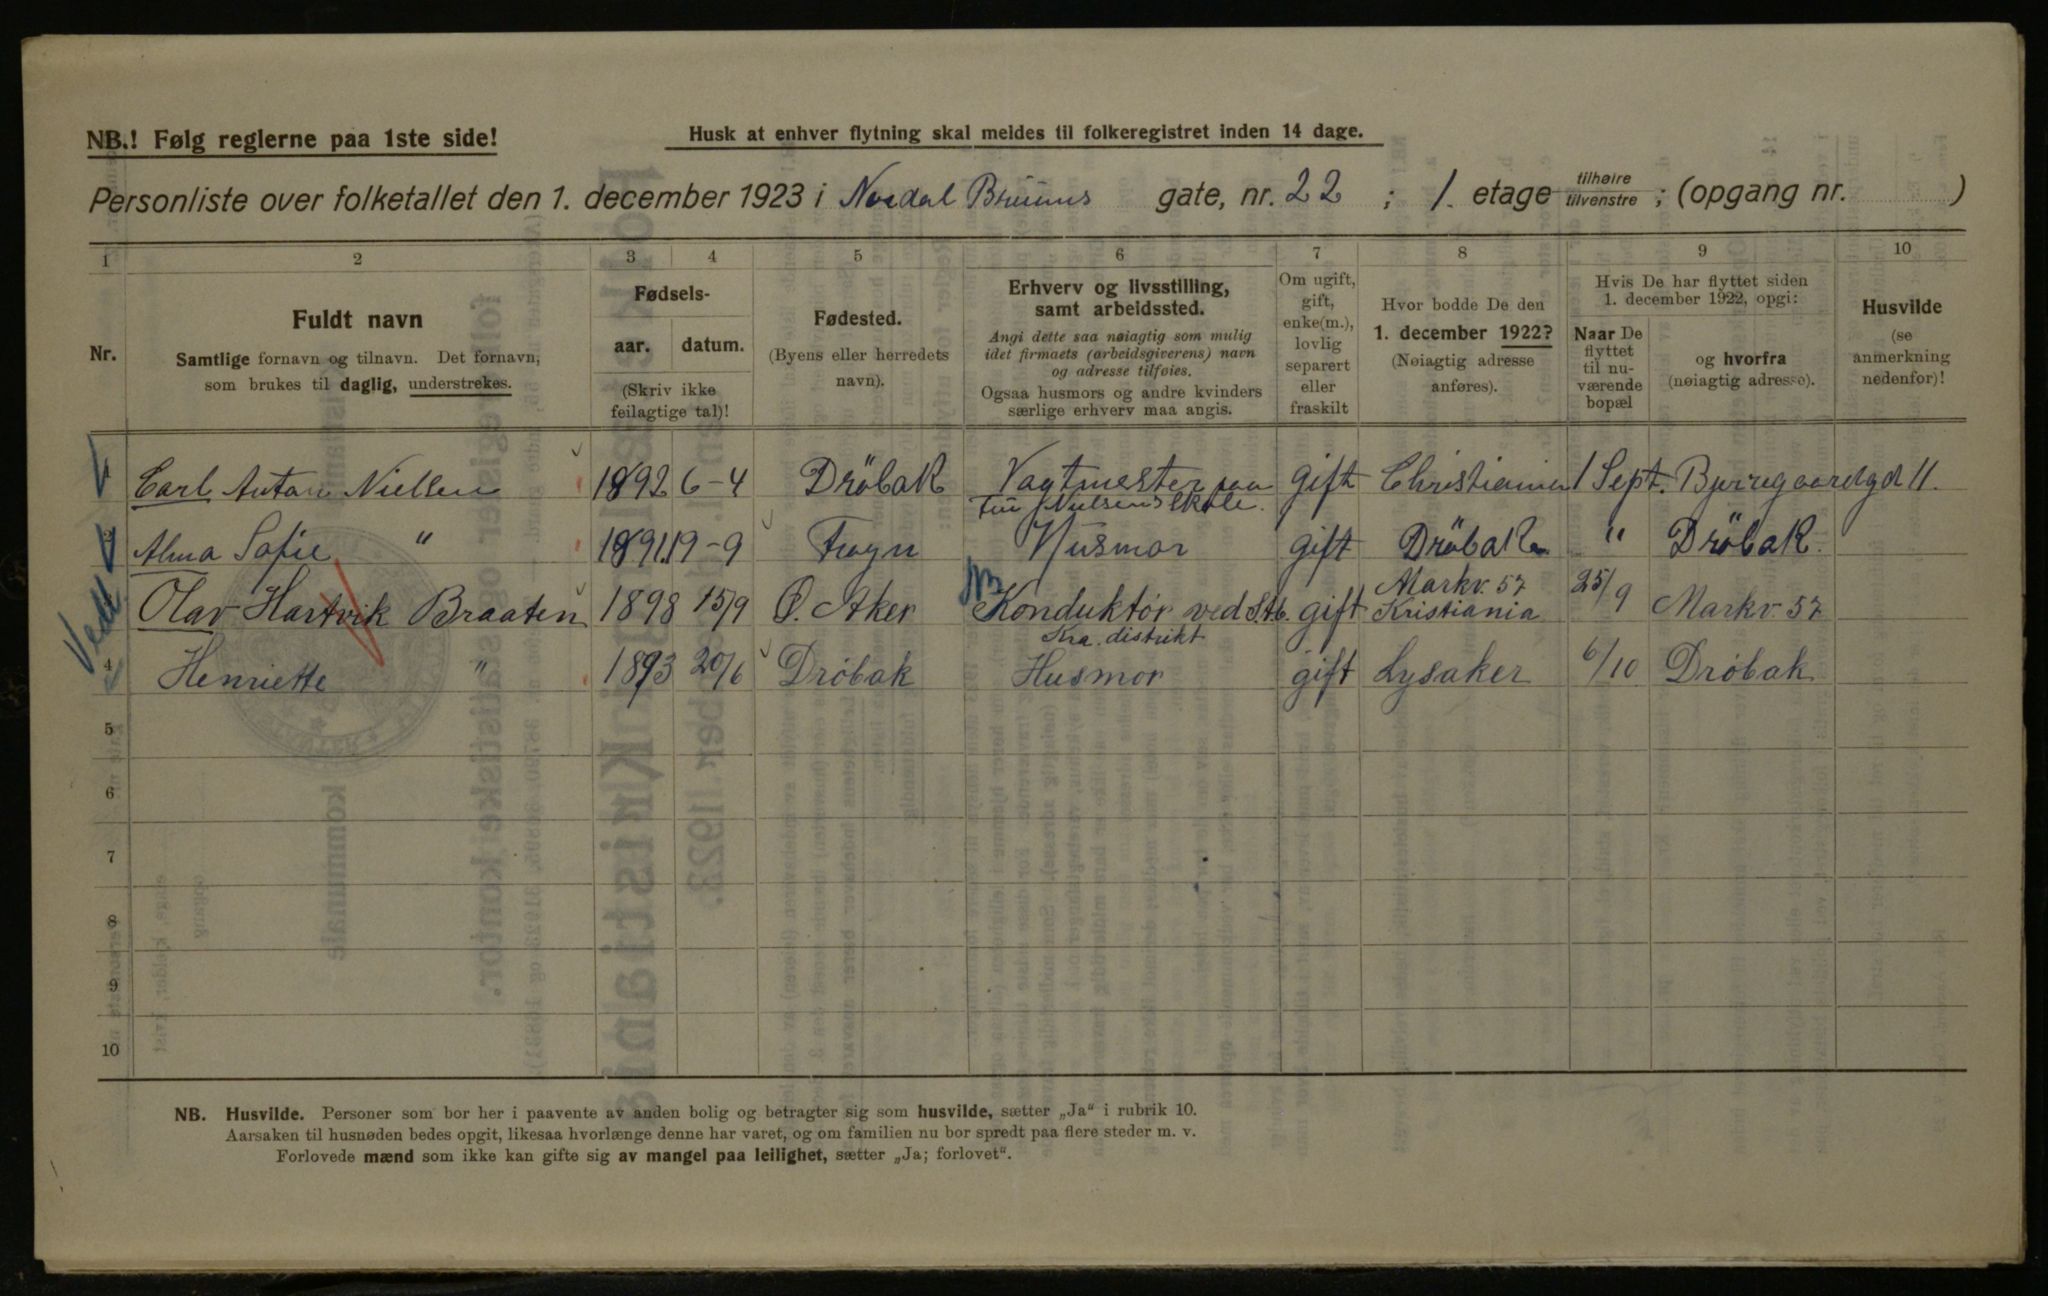 NB.! Følg reglerne paa 1ste side!
Husk at enhver flytning skal meldes til folkeregistret inden 14 dage.
Personliste over folketallet den 1. december 1923 i Nordal Bruuns gate, nr. 22 ; 1. etage tilhøire tilvenstre ; (opgang nr. )
1 2 3 4 5 6 7 8 9 10
Nr.
Fuldt navn
Samtlige fornavn og tilnavn. Det fornavn,
som brukes til daglig, understrekes.
Fødsels-
aar. datum.
(Skriv ikke
feilagtige tal)!
Fødested.
(Byens eller herredets
navn).
Erhverv og livsstilling,
samt arbeidssted.
Angi dette saa nøiagtig som mulig
idet firmaets (arbeidsgiverens) navn
og adresse tilføies.
Ogsaa husmors og andre kvinders
særlige erhverv maa angis.
Om ugift,
gift,
enke(m.),
lovlig
separert
eller
fraskilt
Hvor bodde De den
1. december 1922?
(Nøiagtig adresse
anføres).
Hvis De har flyttet siden
1. december 1922, opgi:
Naar De
flyttet
til nu-
værende
bopæl
og hvorfra
(nøiagtig adresse).
Husvilde
(se
anmerkning
nedenfor)!
Carl Anton Nielsen 1892 6-4 Dröbak Vagtmester paa gift Christiania 1 Sept. 11.
Nielsens Skole.
2 Alma Sofie " 1891 19-9 Frogn Husmor gift Dröbak " Dröbak.
Vedl.
Olav Hartvik Braaten 1898 15/9 Ø. Aker NB Konduktør ved S.t.b. gift Markv. 57 Kristiania 25/9 Markv. 57
Kra. distrikt
4 Henriette " 1893 20/6 Drøbak Husmor gift Lysaker 6/10 Drøbak
5
6
7
8
9
10
NB. Husvilde. Personer som bor her i paavente av anden bolig og betragter sig som husvilde, sætter „Ja“ i rubrik 10.
Aarsaken til husnøden bedes opgit, likesaa hvorlænge denne har varet, og om familien nu bor spredt paa flere steder m. v.
Forlovede mænd som ikke kan gifte sig av mangel paa leilighet, sætter „Ja; forlovet“.